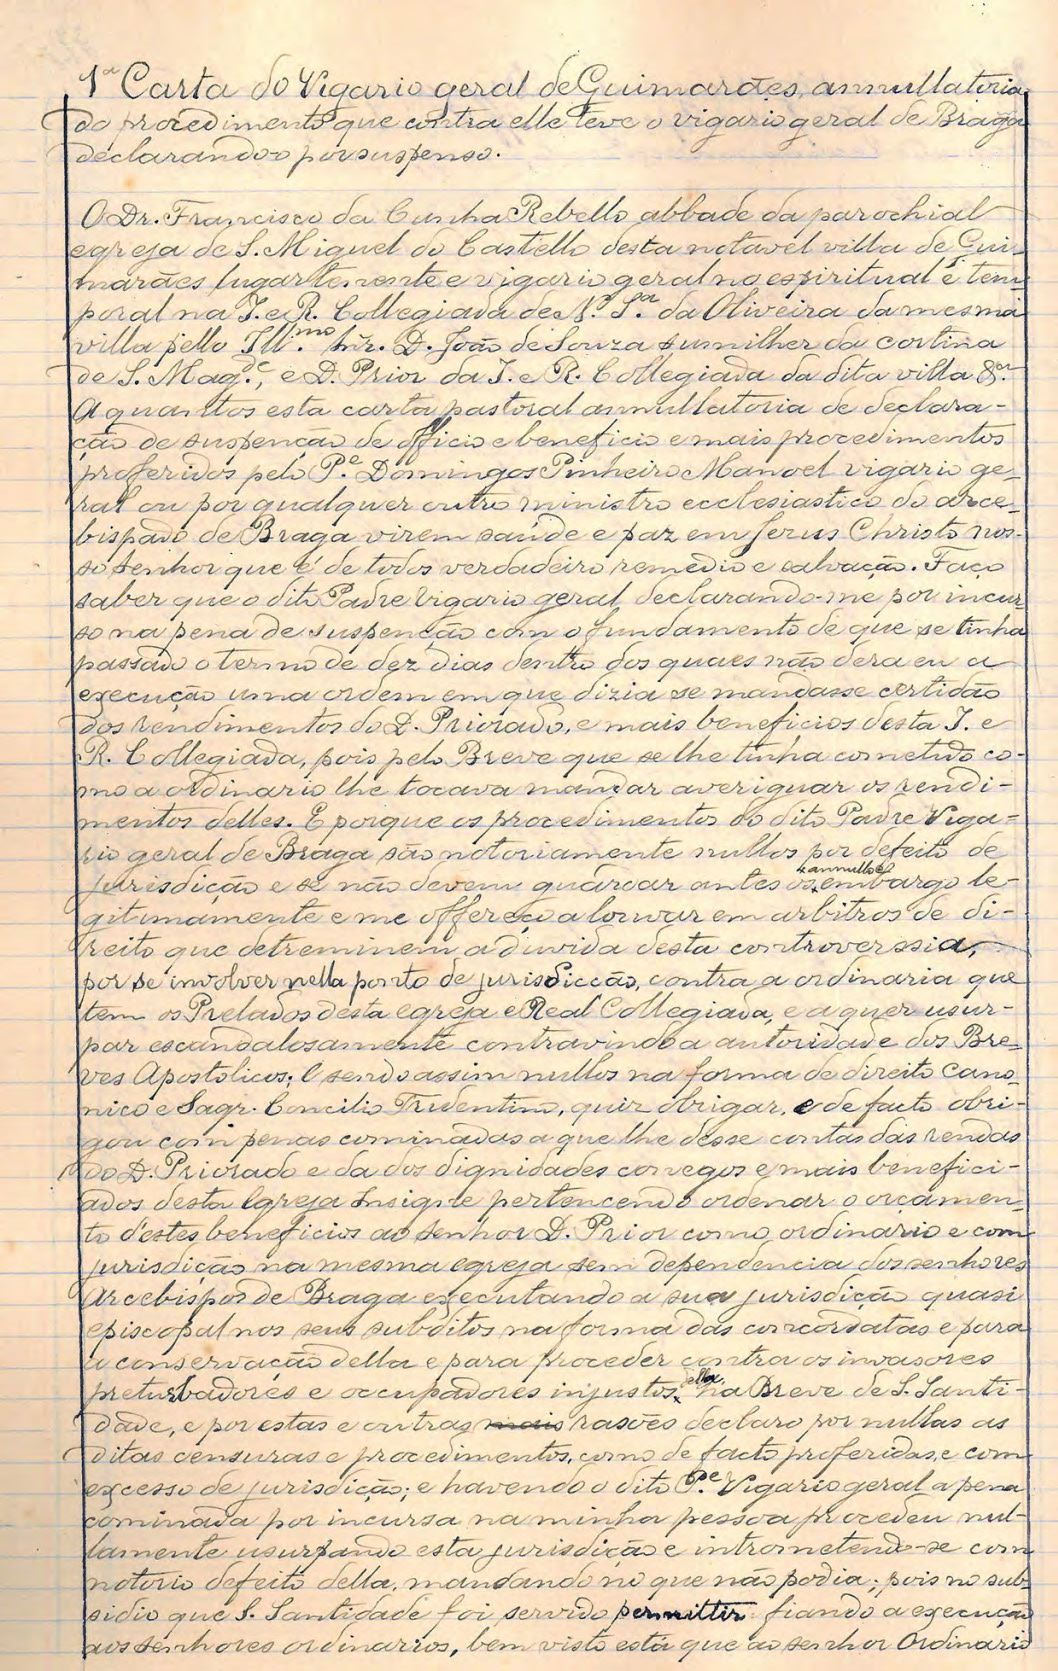 1ª Carta do Vigario geral de Guimarães, annullatoria
do procedimento que contra elle teve o vigario geral de Braga
declarando-o por suspenso.
O Dr. Francisco da Cunha Rebello abbade da parochial
egreja de S. Miguel do Castello desta notavel villa de Gui-
marães lugartenente e vigario geral no espiritual e tem-
poral na I. e R. Collegiada de N.ª S.ra da Oliveira da mesma
villa pello Ill.mo Snr. D. João de Souza sumilher da cortina
de S. Mag.de, e D. Prior da I. e R. Collegiada da dita villa &.ª
A quantos esta carta pastoral annullatoria de declara-
ção de suspenção de officio e beneficio e mais procedimentos
proferidos pelo P.e Domingos Pinheiro Manoel vigario ge-
ral ou por qualquer outro ministro ecclesiastico do arce-
bispado de Braga virem saúde e paz em Jesus Christo nos-
so senhor que é de todos verdadeiro remedio e salvação. Faço
saber que o dito Padre Vigario geral declarando-me por incur-
so na pena de suspenção com o fundamento de que se tinha
passado o termo de dez dias dentro dos quaes não dera eu a
execução uma ordem em que dizia se mandasse certidão
dos rendimentos do D. Priorado, e mais beneficios desta I. e
R. Collegiada, pois pelo Breve que se lhe tinha cometido co-
mo a ordinario lhe tocava mandar averiguar os rendi-
mentos delles. E porque os procedimentos do dito Padre Viga-
rio geral de Braga são notoriamente nullos por defeito de
jurisdicção e se não devem guardar antes os annullo e embargo le-
gitimamente e me offereço a louvar em arbitros de di-
reito que detreminem a duvida desta controverssia,
por se involver nella ponto de jurisdicção, contra a ordinaria que
tem os Prelados desta egreja e Real Collegiada, e a quer usur-
par escandalosamente contravindo a autoridade dos Bre-
ves Apostolicos; E sendo assim nullos na forma de direito Cano-
nico e Sagr. Concilio Tridentino, quiz obrigar, e de facto obri-
gou com penas cominadas a que lhe desse contas das rendas
do D. Priorado e da dos dignidades conegos e mais benefici-
ados desta Egreja Insigne pertencendo ordenar o orçamen-
to d'estes beneficios ao senhor D. Prior como ordinario e com
jurisdição na mesma egreja sem dependencia dos senhores
Arcebispos de Braga executando a sua jurisdição quasi
episcopal nos seus subditos na forma das concordatas e para
a conservação della e para proceder contra os invasores
preturbadores e occupadores injustos della, na Breve de S. Santi-
dade, e por estas e outras mais rasões declaro por nullas as
ditas censuras e procedimentos, como de facto proferidas, e com
excesso de jurisdição; e havendo o dito P.e Vigario geral a pena
cominada por incursa na minha pessoa procedeu nul-
lamente usurpando esta jurisdição e intrometendo-se com
notorio defeito della, mandando no que não podia; pois no sub-
sidio que S. Santidade foi servido permittir fiando a execução
aos senhores ordinarios, bem visto está que ao senhor Ordinario